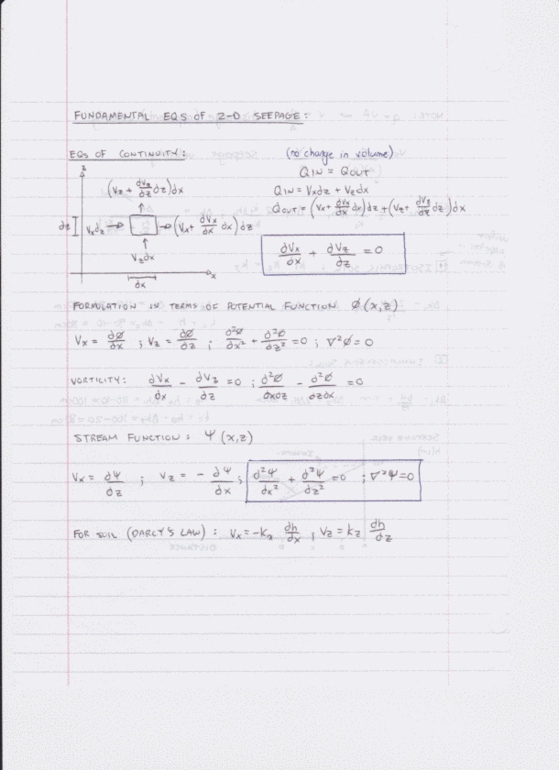 FUNDAMENTAL EQS OF 2-D SEEPAGE:
EQS OF CONTINUITY: (no change in volume)
QIN = QOUT
QIN = Vxdz + Vzdx
QOUT = (Vx + ∂Vx/∂x dx) dz + (Vz + ∂Vz/∂z dz) dx
∂Vx/∂x + ∂Vz/∂z = 0
z
(Vz + ∂Vz/∂z dz) dx
dz Vxdz (Vx + ∂Vx/∂x dx) dz
Vzdx
x
dx
FORMULATION IN TERMS OF POTENTIAL FUNCTION Ø (x,z)
Vx = ∂Ø/∂x ; Vz = ∂Ø/∂z ; ∂²Ø/∂x² + ∂²Ø/∂z² = 0 ; ∇²Ø = 0
VORTICITY: ∂Vx/∂x - ∂Vz/∂z = 0 ; ∂²Ø/∂x∂z - ∂²Ø/∂z∂x = 0
STREAM FUNCTION: Ψ (x,z)
Vx = ∂Ψ/∂z ; Vz = - ∂Ψ/∂x ; ∂²Ψ/∂x² + ∂²Ψ/∂z² = 0 ; ∇²Ψ = 0
FOR SOIL (DARCY'S LAW) : Vx = -kz dh/dx , Vz = kz dh/dz